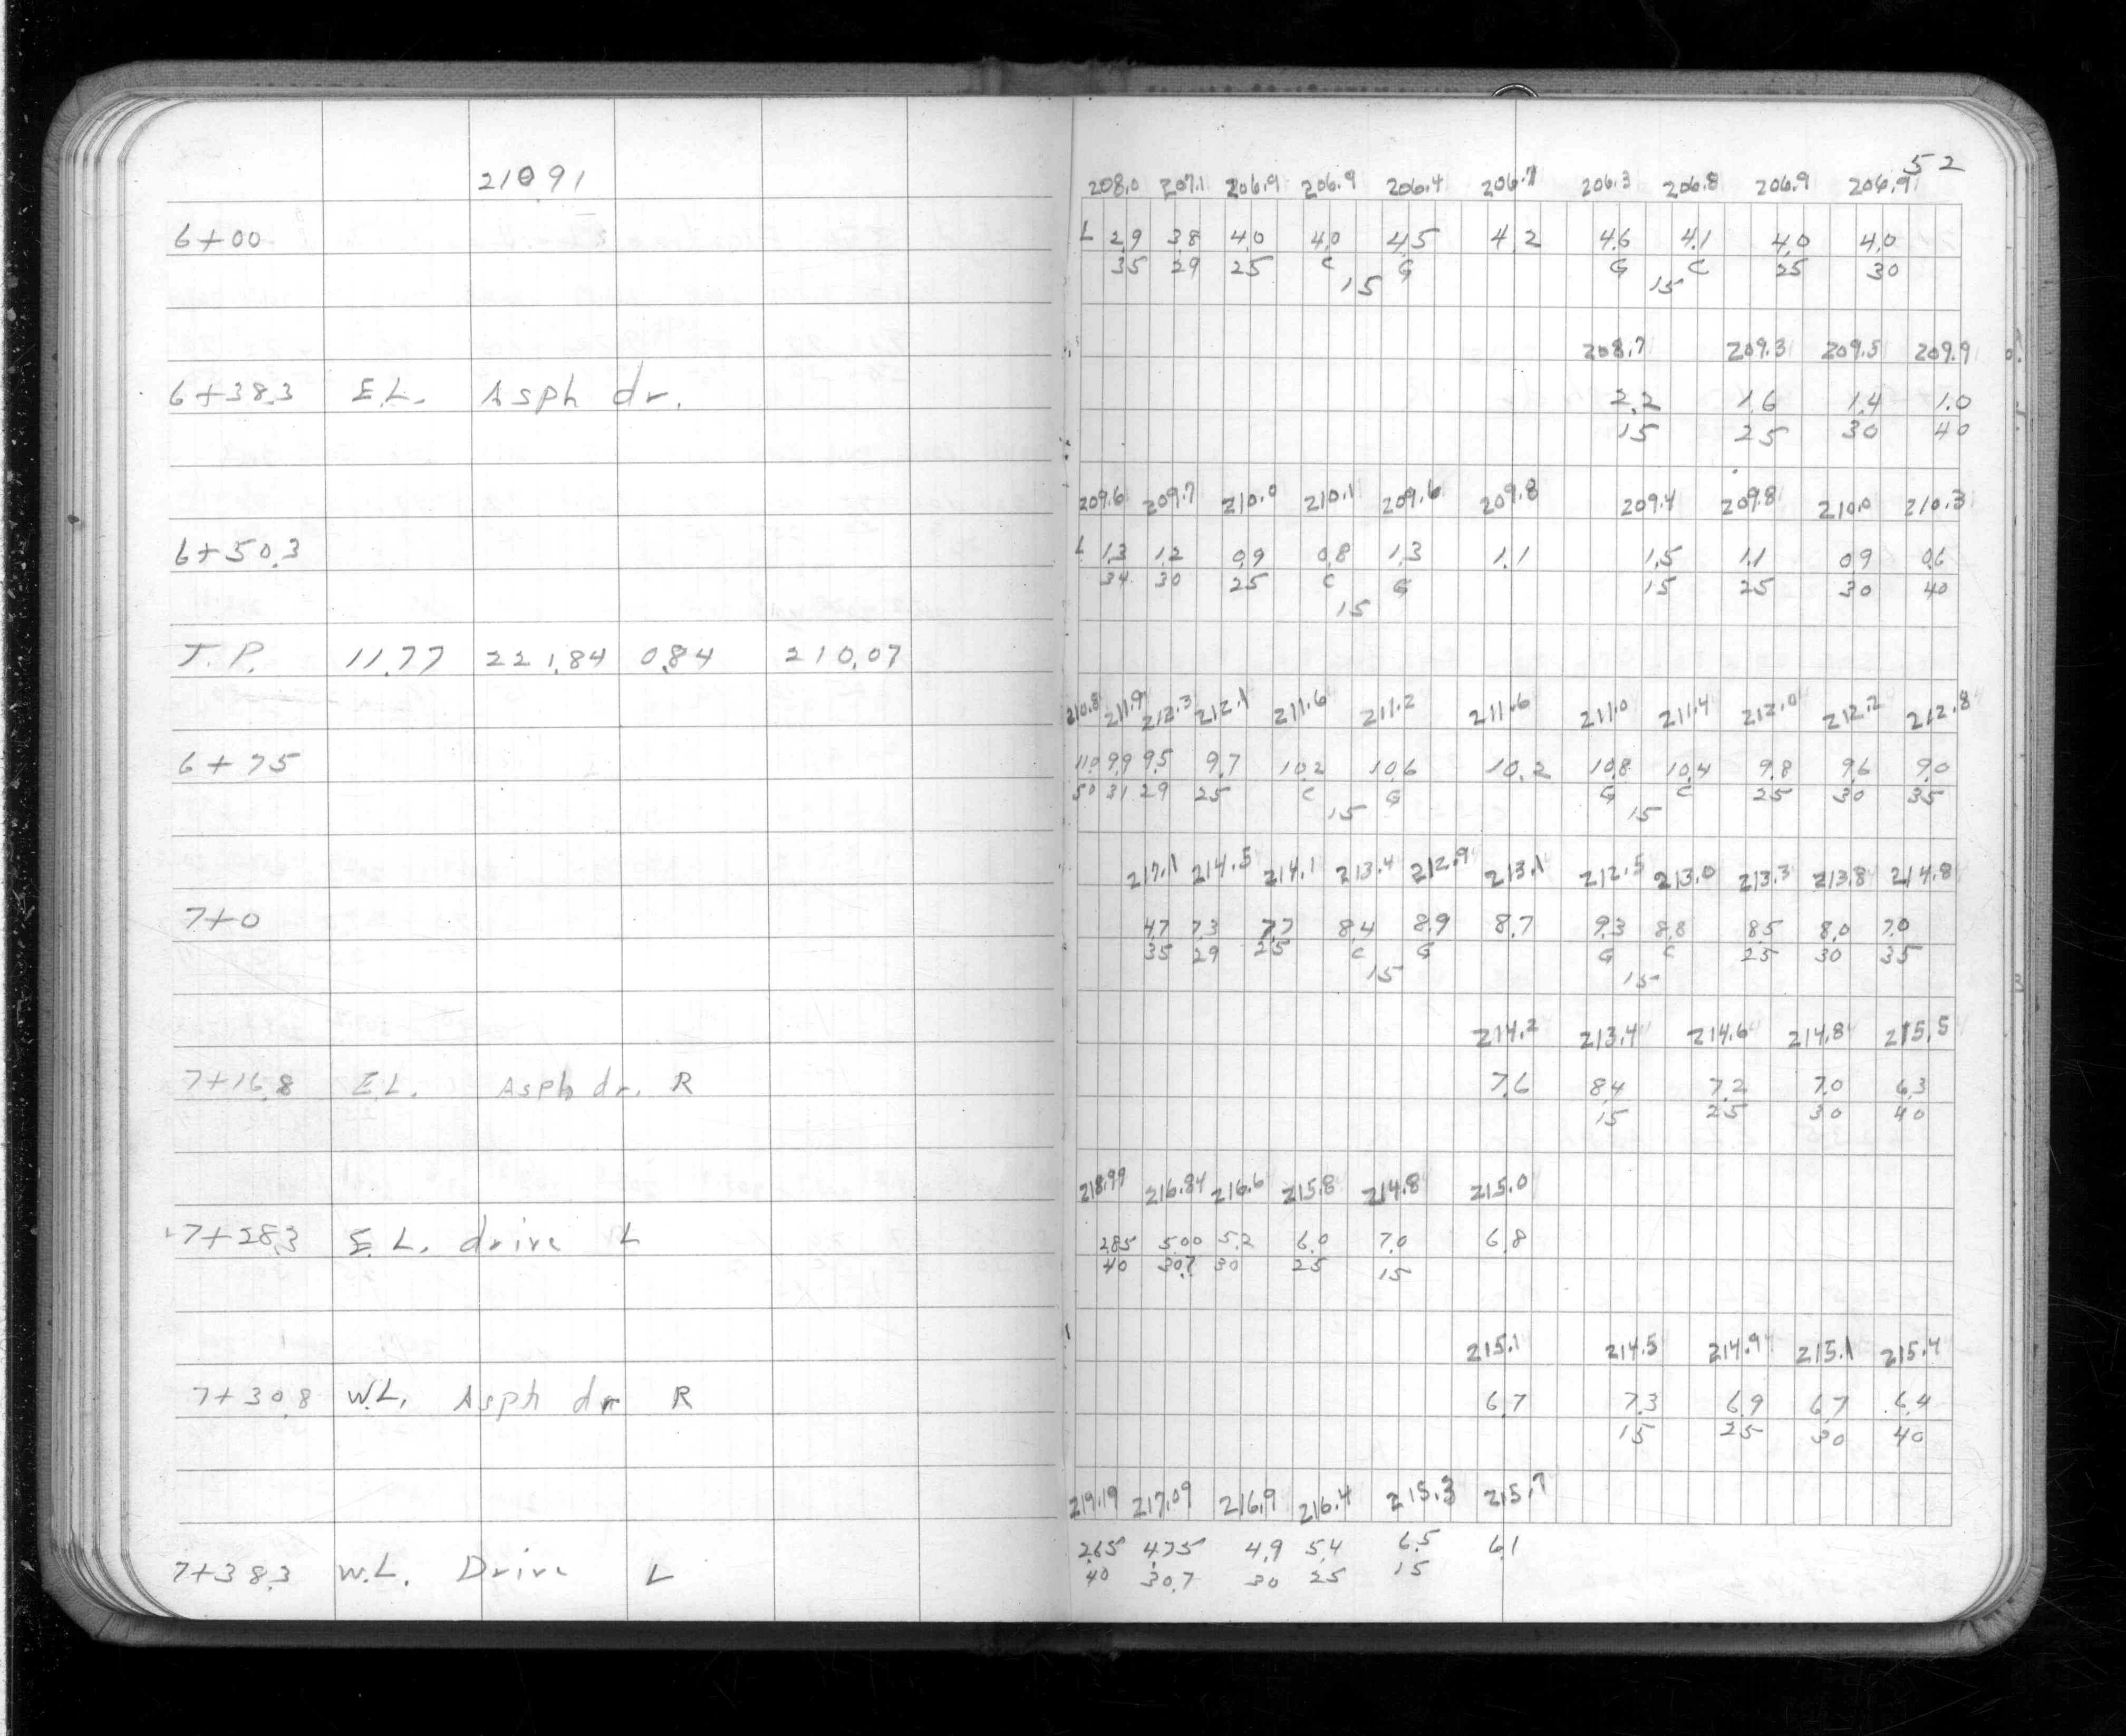 52
210.91
208.0 207.1 206.9 206.9 206.4 206.7 206.3 206.8 206.9 206.9
6+00 L 2.9 3.8 4.0 4.0 4.5 4.2 4.6 4.1 4.0 4.0
35 29 25 C G G C 25 30
15 15
208.7 209.3 209.5 209.9
6+38.3 E.L. Asph dr. 2.2 1.6 1.4 1.0
15 25 30 40
209.6 209.7 210.0 210.1 209.6 209.8 209.4 209.8 210.0 210.3
6+50.3 L 1.3 1.2 0.9 0.8 1.3 1.1 1.5 1.1 0.9 0.6
34 30 25 C G 15 25 30 40
15
T.P. 11.77 221.84 0.84 210.07
210.8 211.9 212.3 212.1 211.6 211.2 211.6 211.0 211.4 212.0 212.2 212.8
6+75 11.0 9.9 9.5 9.7 10.2 10.6 10.2 10.8 10.4 9.8 9.6 9.0
50 31 29 25 C G G C 25 30 35
15 15
217.1 214.5 214.1 213.4 212.9 213.1 212.5 213.0 213.3 213.8 214.8
7+0 4.7 7.3 7.7 8.4 8.9 8.7 9.3 8.8 8.5 8.0 7.0
35 29 25 C G G C 25 30 35
15 15
214.2 213.4 214.6 214.8 215.5
7+16.8 E.L. Asph dr. R 7.6 8.4 7.2 7.0 6.3
15 25 30 40
218.99 216.84 216.6 215.8 214.8 215.0
7+28.3 E.L. drive L 2.85 5.00 5.2 6.0 7.0 6.8
40 30.7 30 25 15
215.1 214.5 214.9 215.1 215.4
7+30.8 W.L. Asph dr R 6.7 7.3 6.9 6.7 6.4
15 25 30 40
219.19 217.09 216.9 216.4 215.3 215.7
7+38.3 W.L. Drive L 2.65 4.75 4.9 5.4 6.5 6.1
40 30.7 30 25 15